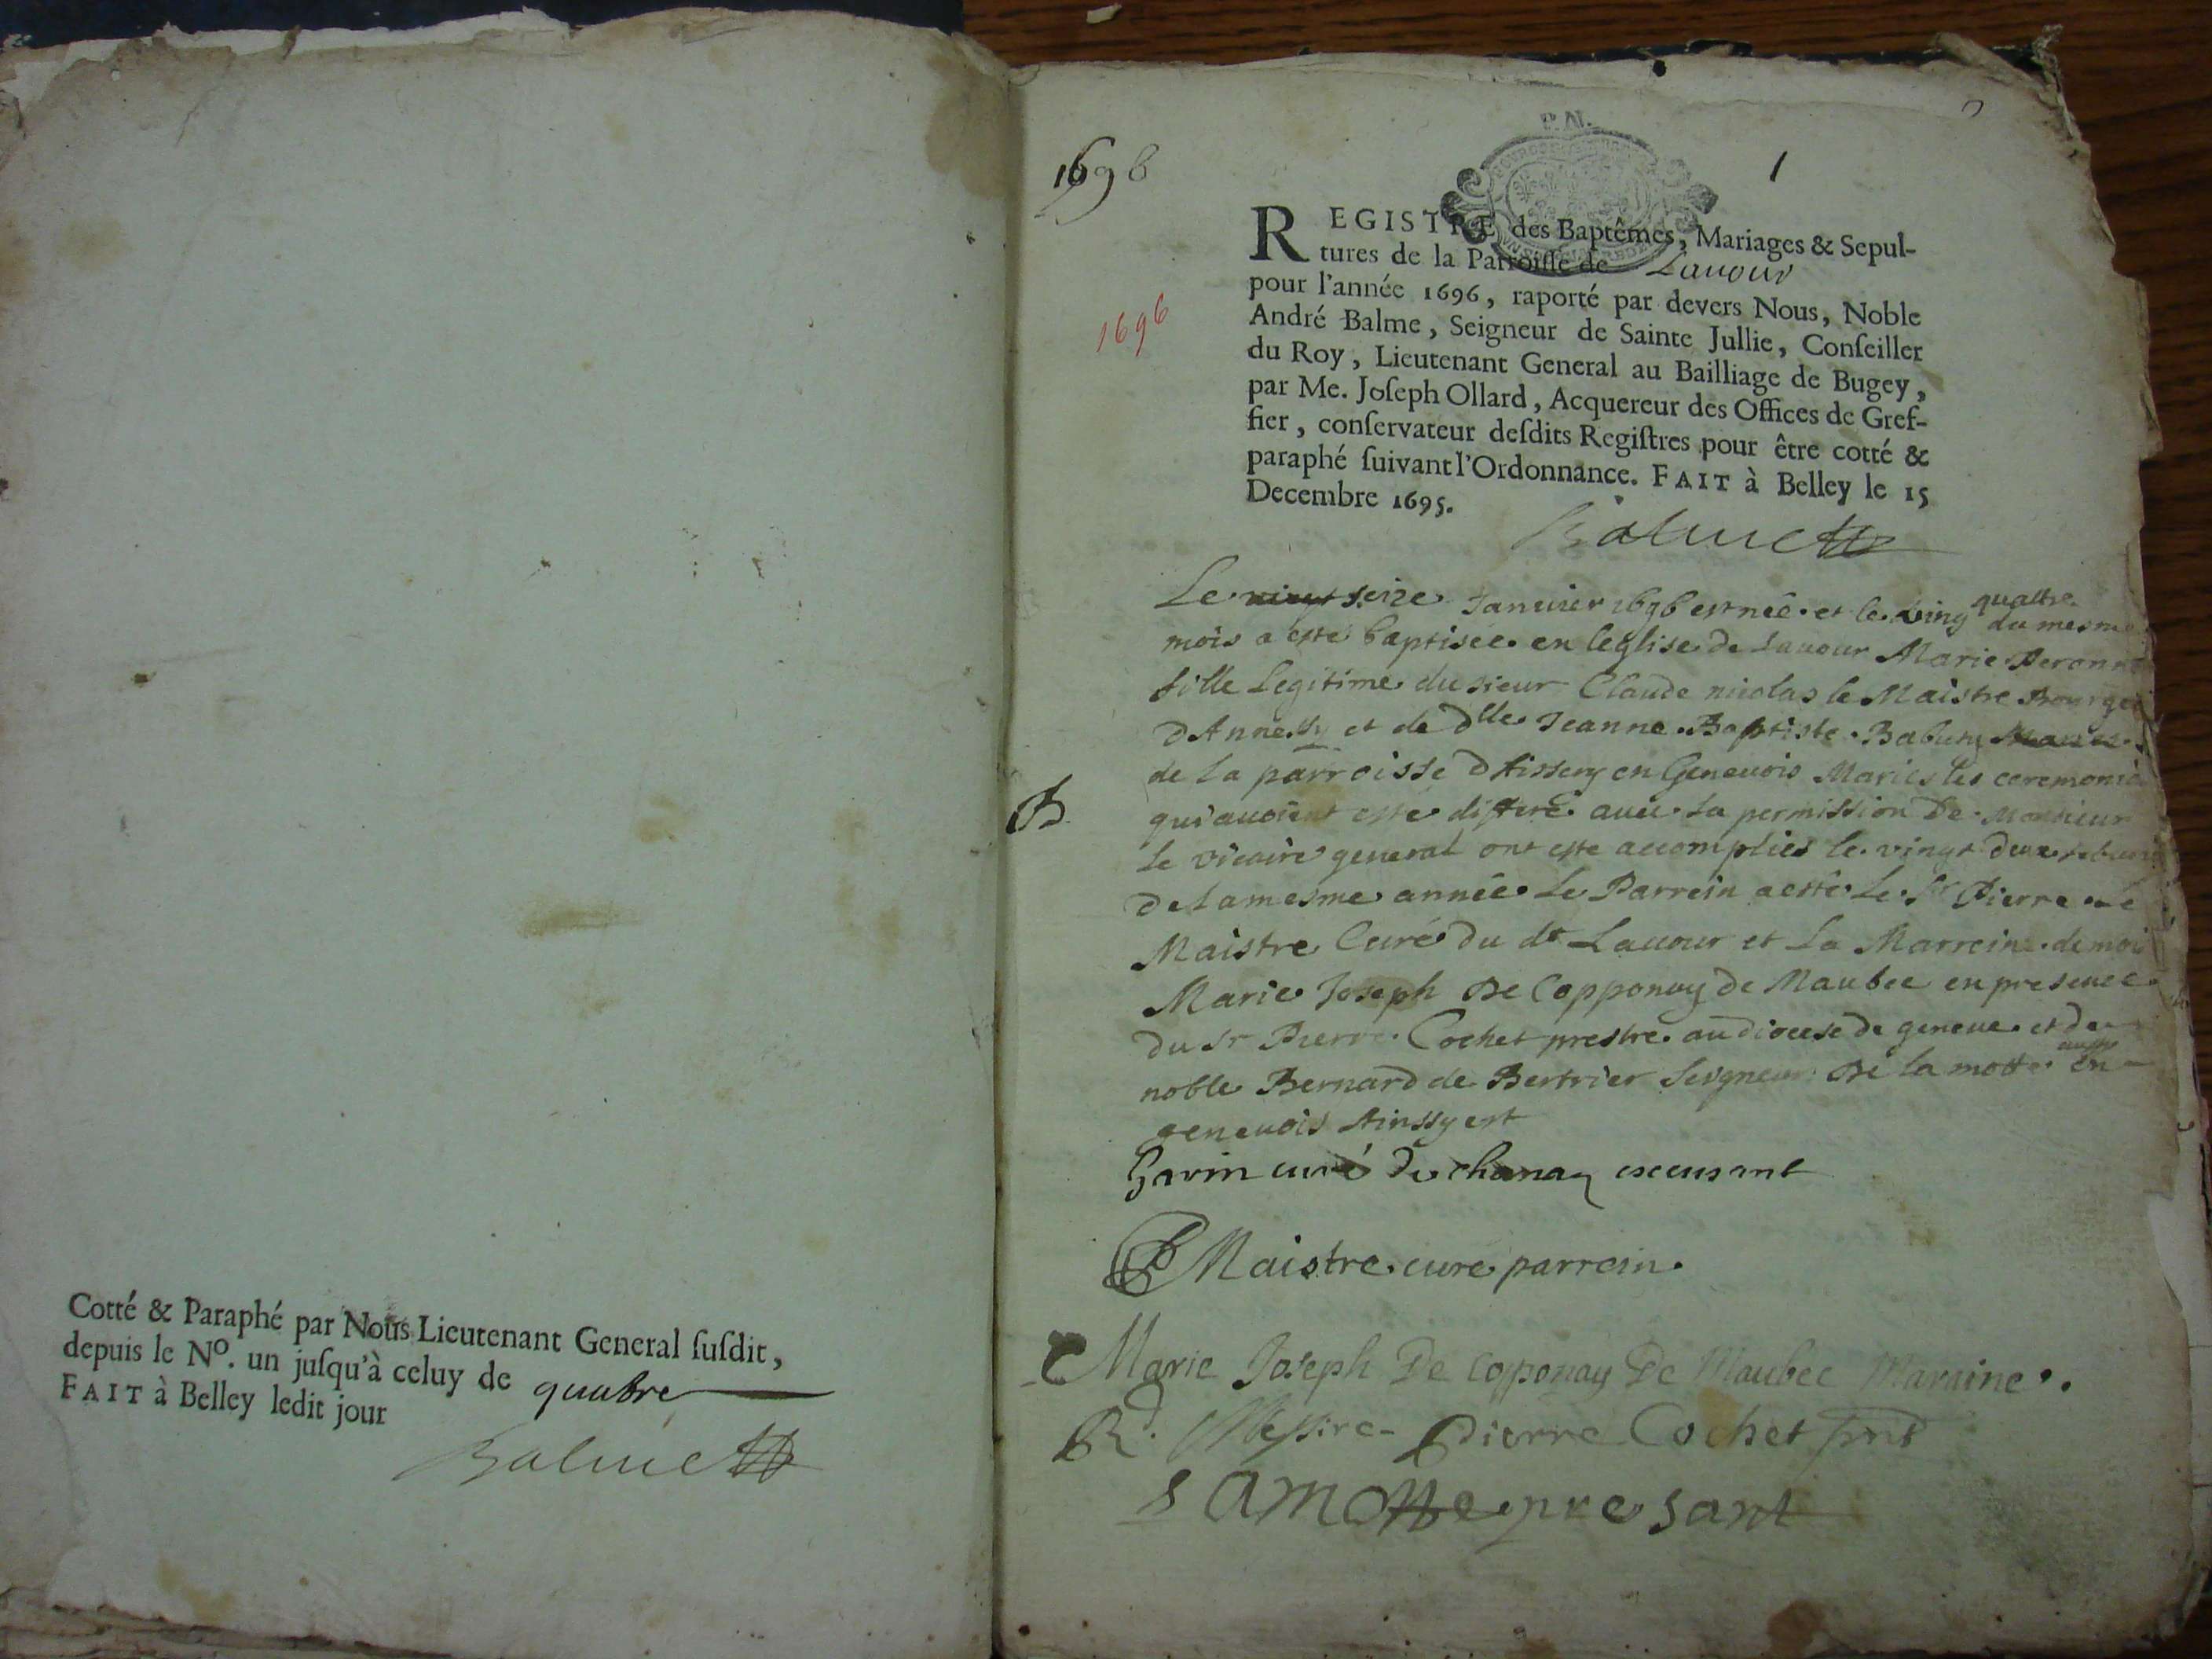 Cotté & Paraphé par Nous Lieutenant General ſuſdit,
depuis le No. un juſqu'à celuy de quatre
FAIT à Belley ledit jour
Balme
P. N.
1
1696
REGISTRE des Baptêmes, Mariages & Sepul-
tures de la Parroiſſe de Lauour
pour l'année 1696, raporté par devers Nous, Noble
1696
André Balme, Seigneur de Sainte Jullie, Conſeiller
du Roy, Lieutenant General au Bailliage de Bugey,
par Me. Joſeph Ollard, Acquereur des Offices de Gref-
fier, conſervateur deſdits Regiſtres pour être cotté &
paraphé ſuivant l'Ordonnance. FAIT à Belley le 15
Decembre 1695.
Balme
Le seize Januier 1696 est neé et le ving quattre du mesme
mois a esté baptisée en leglise de Lauour Marie Peronne
fille Legitime du sieur Claude nicolas le Maistre Bourgeo
dAnnessy et de dlle Jeanne Baptiste
de la parroisse en Geneuois Maries les ceremonie
B
qui auoient esté differé auec la permission De Monsieur
le vicaire general ont esté accomplies le vingt deux
de la mesme année Le Parrein a esté le Sr Pierre Le
Maistre Curé du dt Lauour et La Marreine demoi
Marie Joseph De Copponay de Maubec en presence
du Sr Pierre Cochet prestre au diocese de geneue et de
noble Bernard de Bertrier Seigneur De la motte aussy en
geneuois Ainssy est
Garin curé de chanay excusant
P Maistre curé parrein
Marie Joseph De Copponay De Maubec Maraine
Rd. Messire Pierre Cochet pnt
Lamotte presant